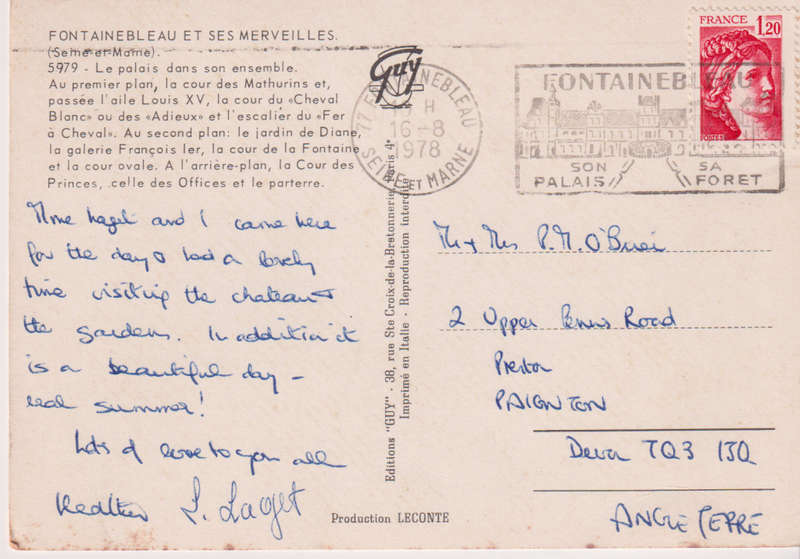 FONTAINEBLEAU ET SES MERVEILLES.
(Seine-et-Marne).
5979 - Le palais dans son ensemble.
Au premier plan, la cour des Mathurins et,
passée l'aile Louis XV, la cour du «Cheval
Blanc» ou des «Adieux» et l'escalier du «Fer
à Cheval». Au second plan: le jardin de Diane,
la galerie François Ier, la cour de la Fontaine
et la cour ovale. A l'arrière-plan, la Cour des
Princes, celle des Offices et le parterre.
Guy
77 FONTAINEBLEAU
H
16-8
1978
SEINE ET MARNE
FONTAINEBLEAU
SON PALAIS
SA FORET
FRANCE 1,20
POSTES
Mme Laget and I came here
for the day & had a lovely
time visiting the chateau &
the gardens. In addition it
is a beautiful day -
real summer!
Lots of love to you all
Heather L. Laget
Editions "GUY" - 38, rue Ste Croix-de-la-Bretonnerie, Paris 4e
Imprimé en Italie - Reproduction interdite
Production LECONTE
Mr & Mrs P.M. O'Brien
2 Upper Penns Road
Preston
PAIGNTON
Devon TQ3
ANGLETERRE